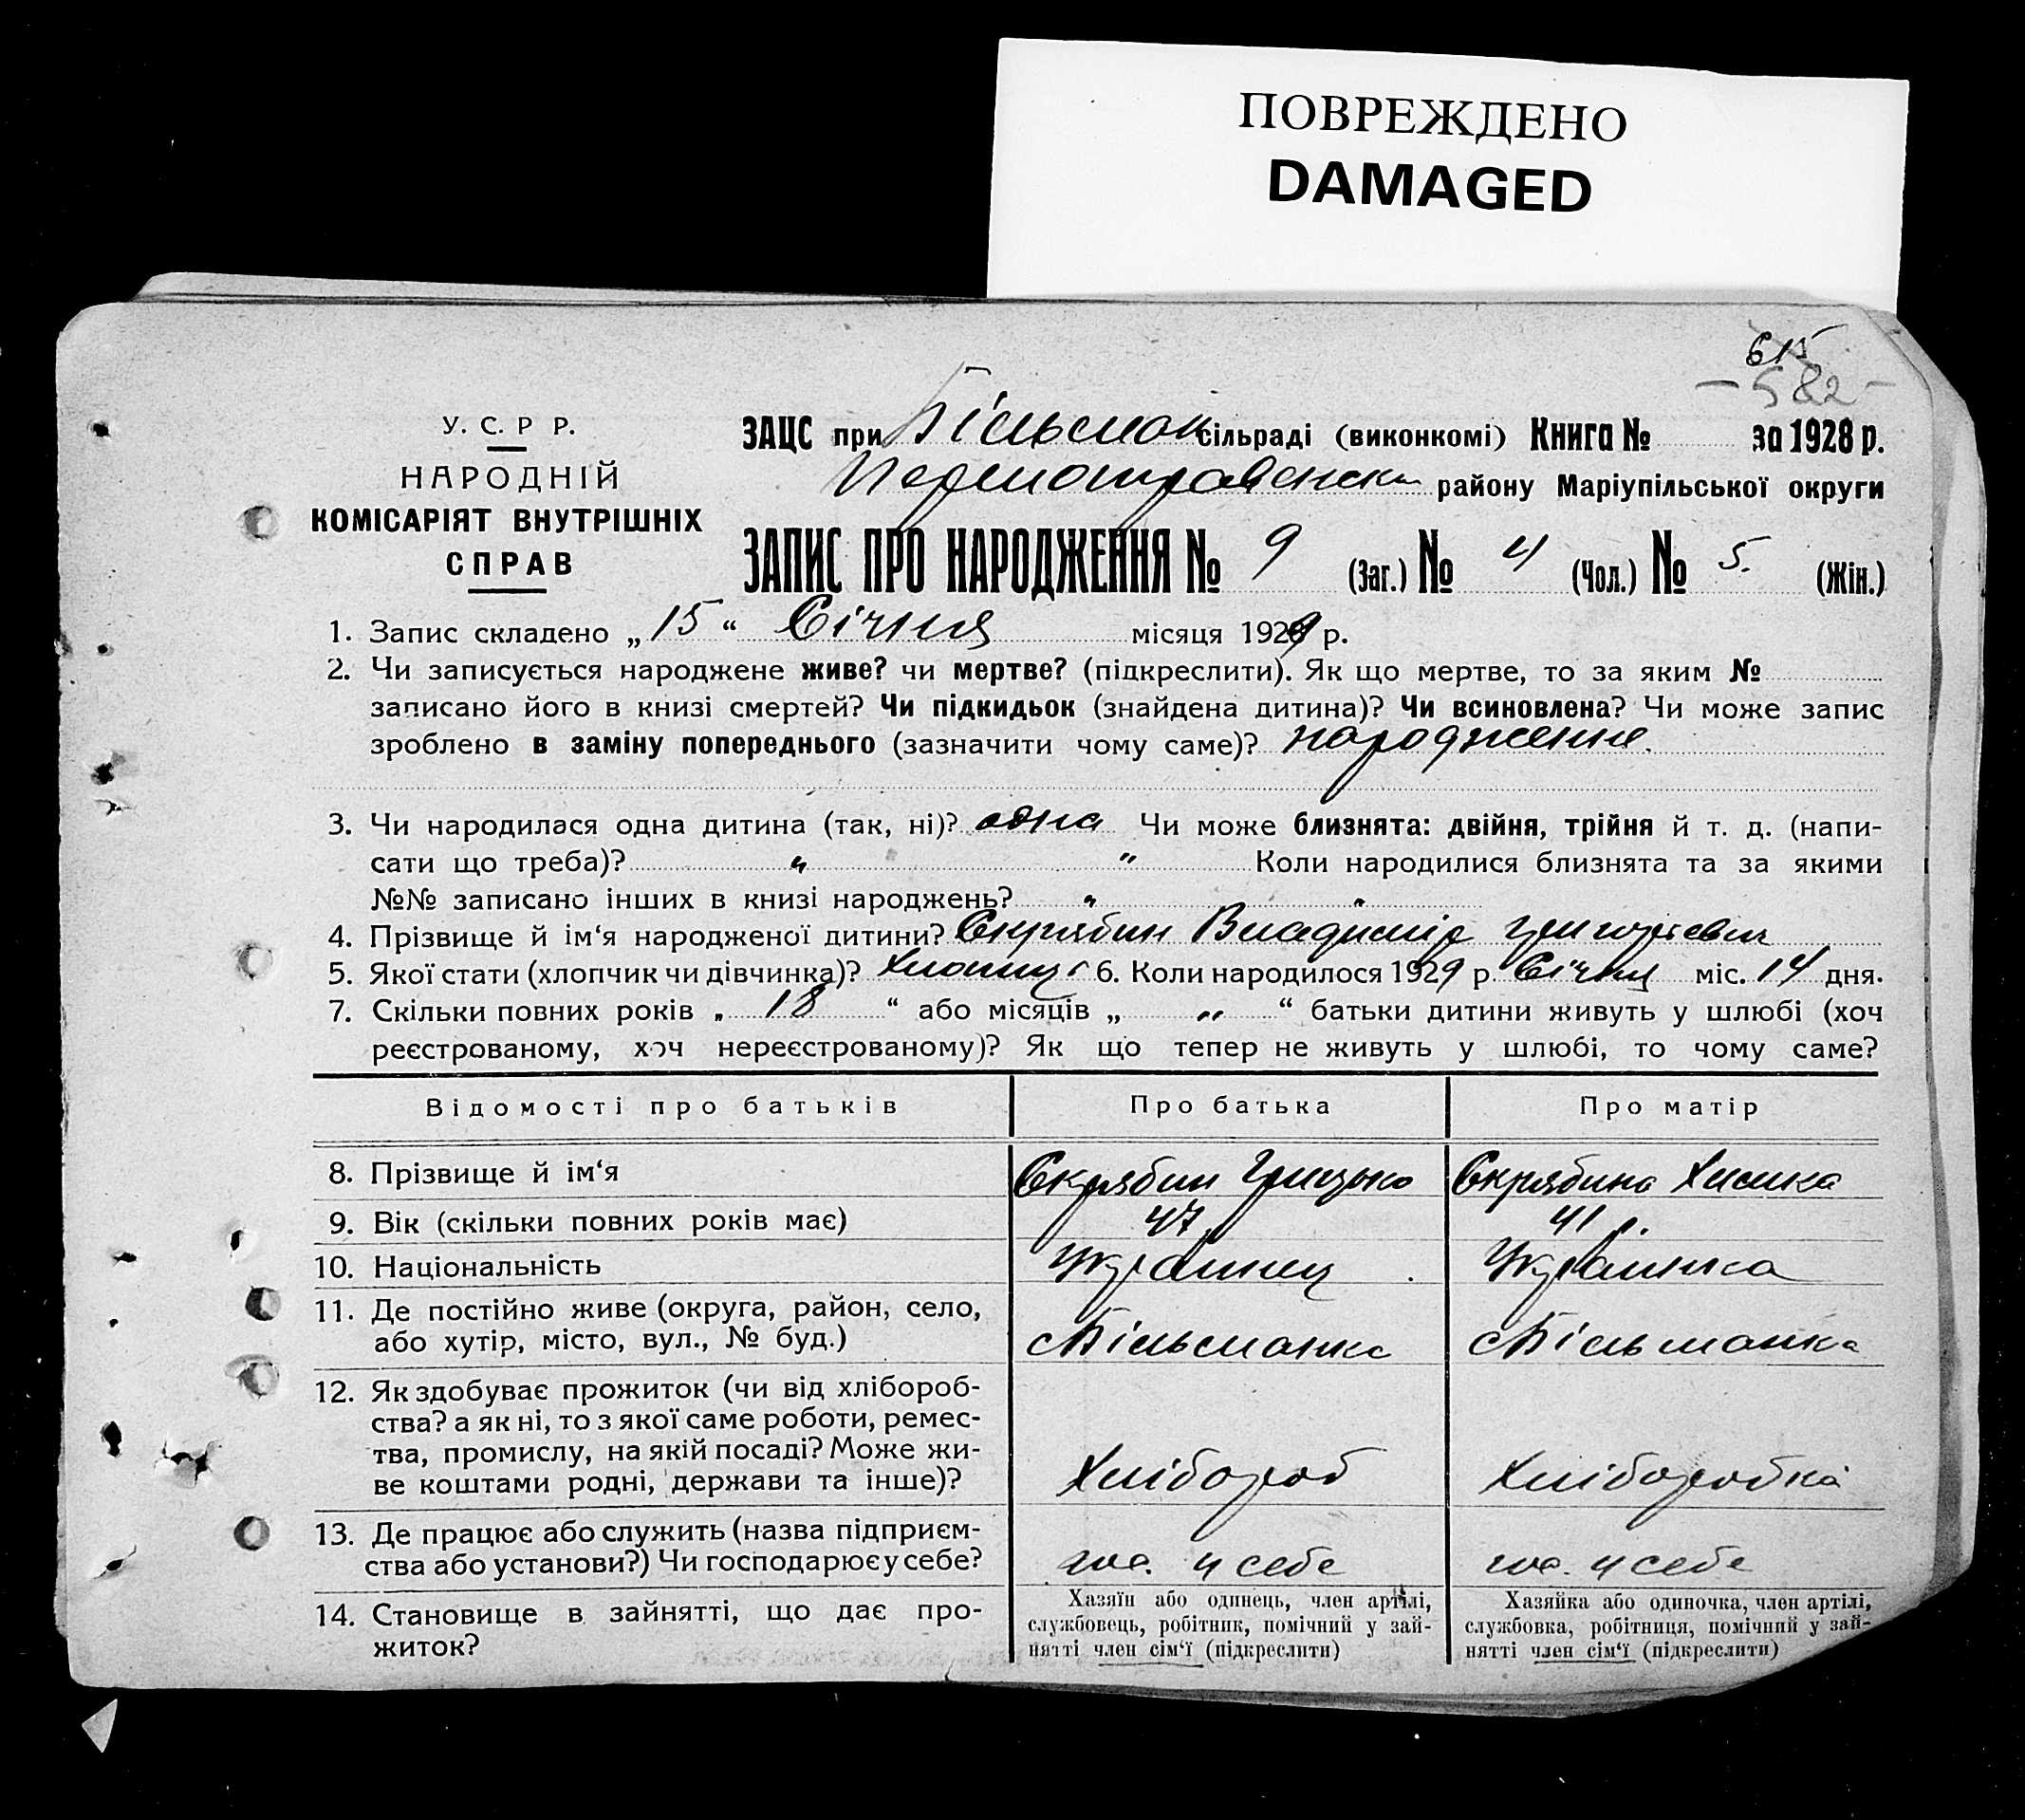 ПОВРЕЖДЕНО
DAMAGED
615
- 582 -
У. С. Р Р.
НАРОДНІЙ
КОМІСАРІЯТ ВНУТРІШНІХ
СПРАВ
ЗАЦС при Більман сільраді (виконкомі) Книга № за 1928 р.
району Маріупільської округи
ЗАПИС ПРО НАРОДЖЕННЯ № 9 (Заг.) № 4 (Чол.) № 5. (Жін.)
1. Запис складено „ 15 “ Січня місяця 1929 р.
2. Чи записується народжене живе? чи мертве? (підкреслити). Як що мертве, то за яким №
записано його в книзі смертей? Чи підкидьок (знайдена дитина)? Чи всиновлена? Чи може запис
зроблено в заміну попереднього (зазначити чому саме)? народження.
3. Чи народилася одна дитина (так, ні)? одна Чи може близнята: двійня, трійня й т. д. (напи-
сати що треба)? „ „ Коли народилися близнята та за якими
№№ записано інших в книзі народжень? „ „
4. Прізвище й ім‘я народженої дитини? Скрябин Владимір Григорієвич
5. Якої стати (хлопчик чи дівчинка)? 6. Коли народилося 1929 р Січня міс. 14 дня.
7. Скільки повних років „ 18 “ або місяців „ „ “ батьки дитини живуть у шлюбі (хоч
реєстрованому, хоч нереєстрованому)? Як що тепер не живуть у шлюбі, то чому саме?
Відомості про батьків Про батька Про матір
8. Прізвище й ім‘я Скрябин Грицько Скрябина Химка
9. Вік (скільки повних років має) 47 41 р.
10. Національність Українец Українка
11. Де постійно живе (округа, район, село,
або хутір, місто, вул., № буд.) с Більманка с Більманка
12. Як здобуває прожиток (чи від хлібороб-
ства? а як ні, то з якої саме роботи, ремес-
тва, промислу, на якій посаді? Може жи-
ве коштами родні, держави та інше)? Хлібороб Хліборобка
13. Де працює або служить (назва підприєм-
ства або установи?) Чи господарює у себе? гос. у себе гос. у себе
14. Становище в зайнятті, що дає про-
житок?
Хазяїн або одинець, член артілі,
службовець, робітник, помічний у зай-
нятті член сім‘ї (підкреслити)
Хазяйка або одиночка, член артілі,
службовка, робітниця, помічний у зай-
нятті член сім‘ї (підкреслити)